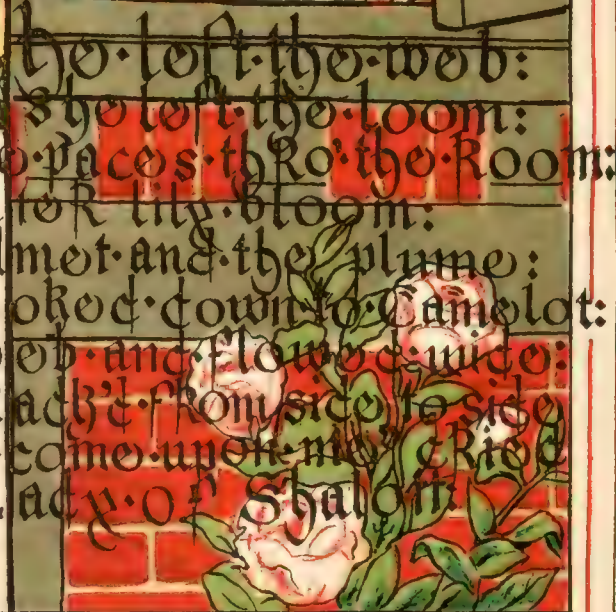 he·left·the·web:
She left·the·loom:
paces·thro'·the·Room:
lily·bloom:
lmet·and·the plume:
oked·down·to·Camelot:
eb·and·flowed·wide:
ack'd·from side to side
come·upon·me' cried
ady·of Shalott